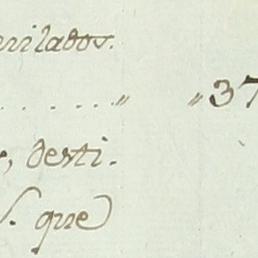 rrilados.
. . . . . . . „ „ 37
, desti-
S. que